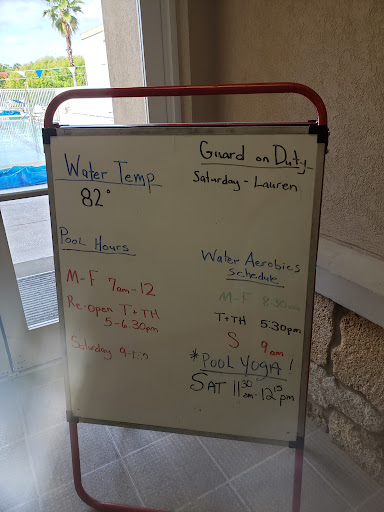 Water Temp
82°
Guard on Duty
Saturday - Lauren
Pool Hours
M-F 7am-12
Re-open T+TH
5-6:30pm
Saturday
Water Aerobics
Schedule
M-F 8:30am
T+TH 5:30pm
S 9am
*POOL YOGA!
SAT 11:30am-12:15pm